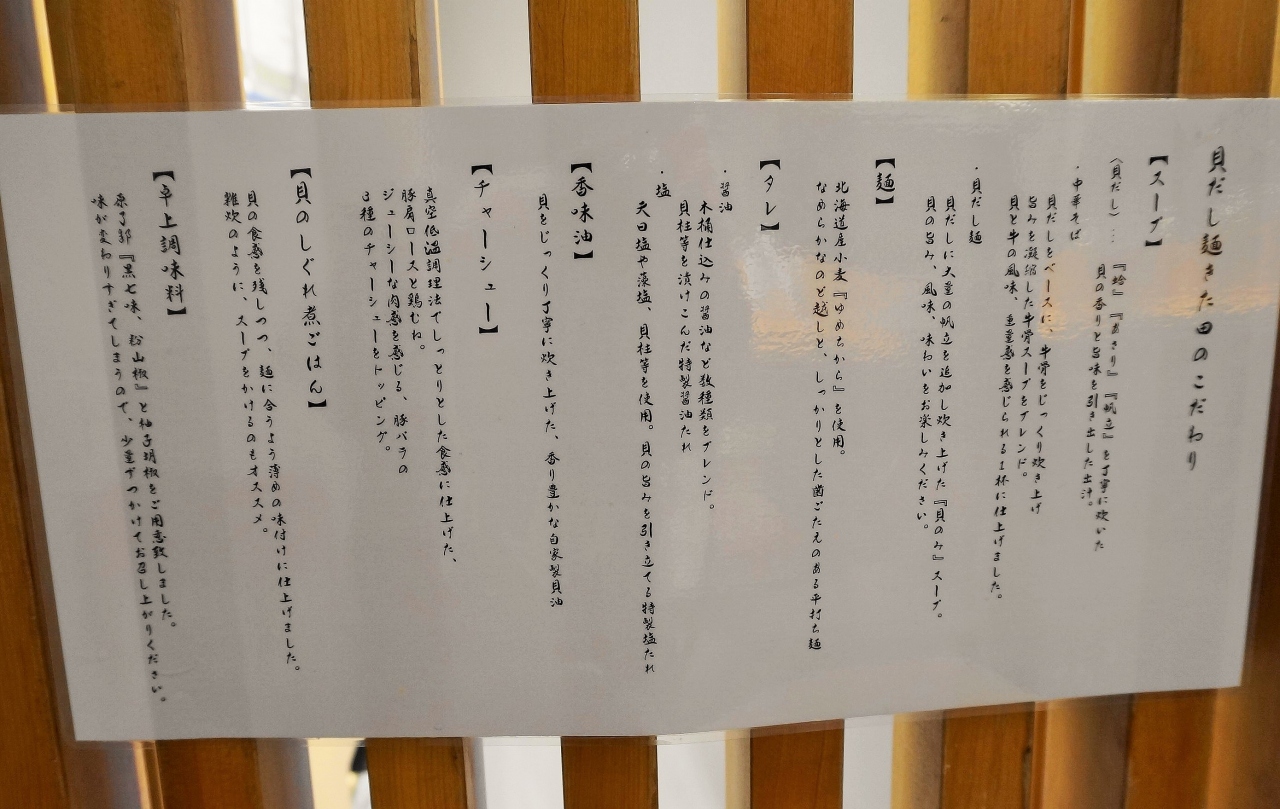 貝だし麺きた田のこだわり
【スープ】
〈貝だし〉… 『蛤』『あさり』『帆立』を丁寧に炊いた
貝の香りと旨味を引き出した出汁。
・中華そば
貝だしをベースに、牛骨をじっくり炊き上げ
旨みを凝縮した牛骨スープをブレンド。
貝と牛の風味、重量感を感じられる1杯に仕上げました。
・貝だし麺
貝だしに大量の帆立を追加し炊き上げた『貝のみ』スープ。
貝の旨み、風味、味わいをお楽しみください。
【麺】
北海道産小麦『ゆめちから』を使用。
なめらかなのど越しと、しっかりとした歯ごたえのある平打ち麺
【タレ】
・醤油
木桶仕込みの醤油など数種類をブレンド。
貝柱等を漬けこんだ特製醤油たれ
・塩
天日塩や藻塩、貝柱等を使用。貝の旨みを引き立てる特製塩たれ
【香味油】
貝をじっくり丁寧に炊き上げた、香り豊かな自家製貝油
【チャーシュー】
真空低温調理法でしっとりとした食感に仕上げた、
豚肩ロースと鶏むね。
ジューシーな肉感を感じる、豚バラの
3種のチャーシューをトッピング。
【貝のしぐれ煮ごはん】
貝の食感を残しつつ、麺に合うよう薄めの味付けに仕上げました。
雑炊のように、スープをかけるのもオススメ。
【卓上調味料】
原了郭『黒七味、粉山椒』と柚子胡椒をご用意致しました。
味が変わりすぎてしまうので、少量ずつかけてお召し上がりください。